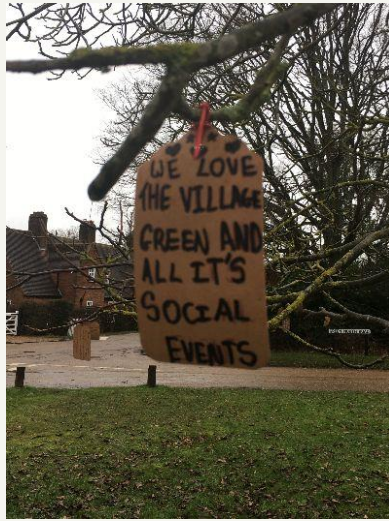 WE LOVE
THE VILLAGE
GREEN AND
ALL IT'S
SOCIAL
EVENTS